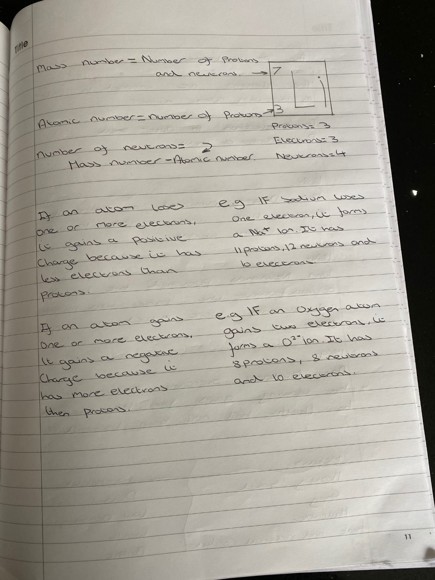 Title
Mass number = Number of Protons
and neutrons. → 7
Li
Atomic number = number of Protons → 3
Protons = 3
Electrons = 3
Neutrons = 4
number of neutrons = 2
Mass number - Atomic number
If an atom loses
one or more electrons,
it gains a positive
charge because it has
less electrons than
protons.
e.g IF sodium loses
one electron, it forms
a Na⁺ ion. It has
11 protons, 12 neutrons and
10 electrons
If an atom gains
one or more electrons,
it gains a negative
charge because it
has more electrons
then protons.
e.g IF an Oxygen atom
gains two electrons, it
forms a O²⁻ ion. It has
8 protons, 8 neutrons
and 10 electrons.
11